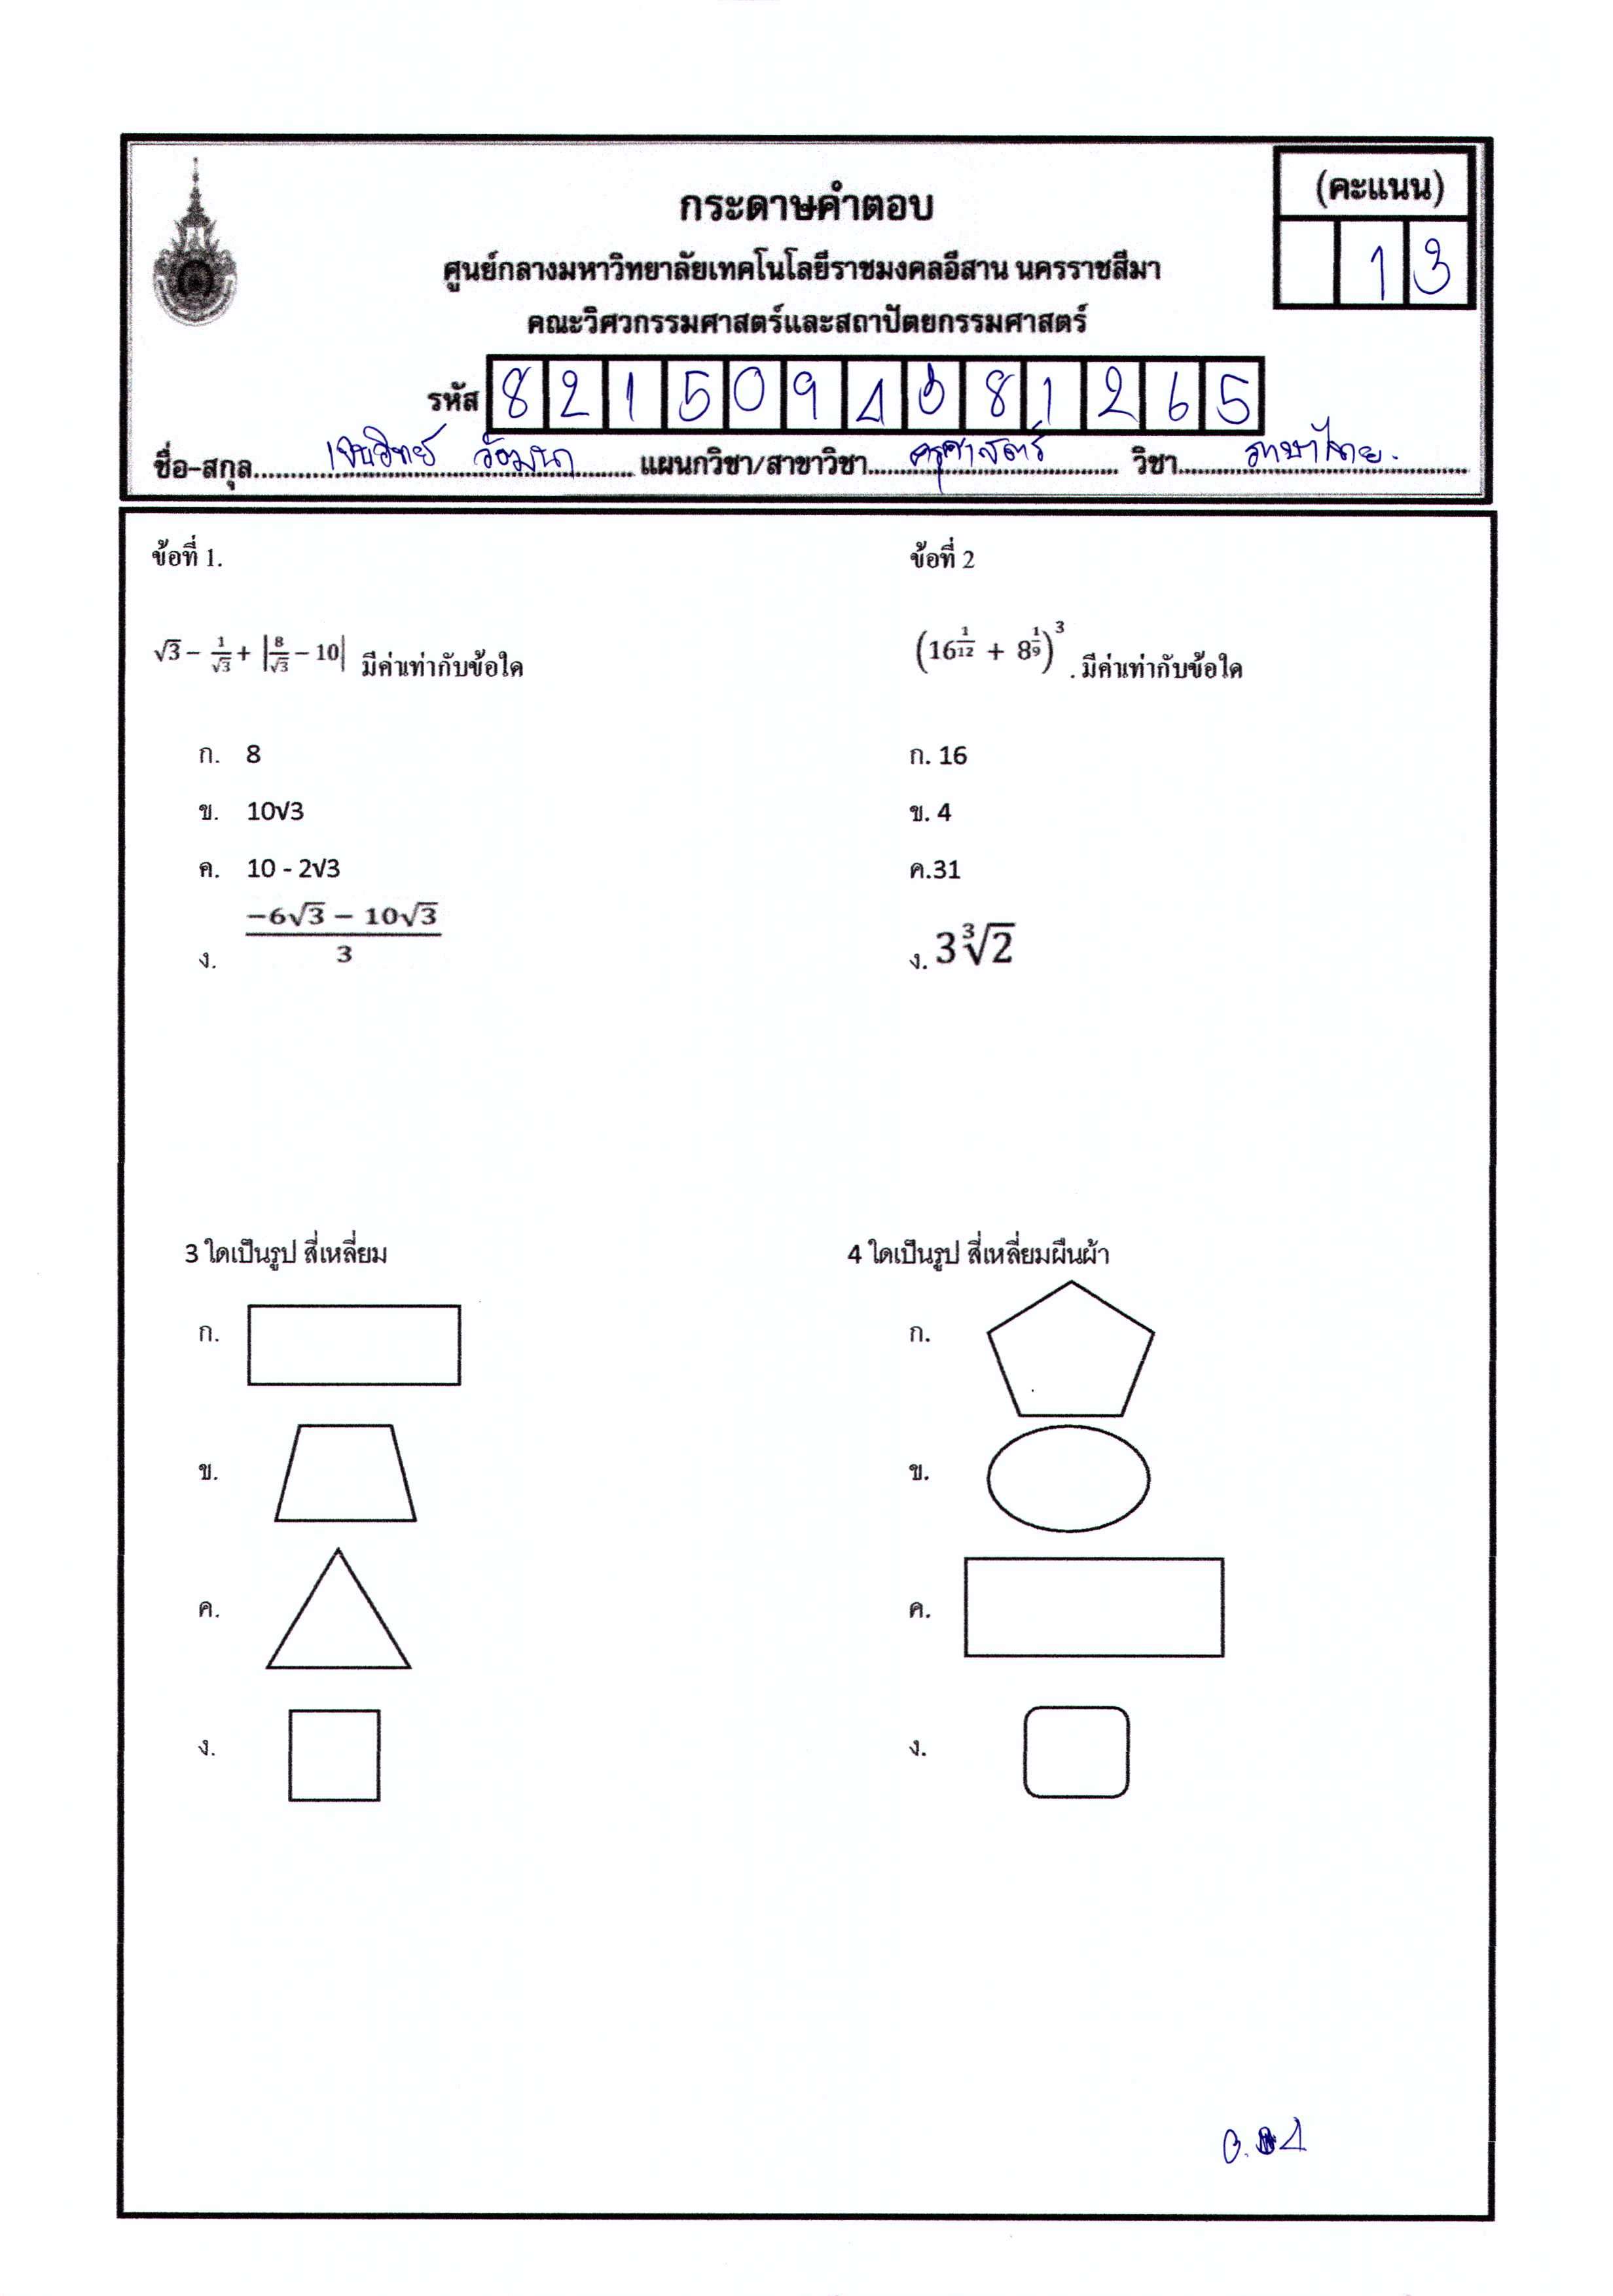 (คะแนน)
13
กระดาษคำตอบ
ศูนย์กลางมหาวิทยาลัยเทคโนโลยีราชมงคลอีสาน นครราชสีมา
คณะวิศวกรรมศาสตร์และสถาปัตยกรรมศาสตร์
รหัส 8215094081265
ชื่อ-สกุล.......... แผนกวิชา/สาขาวิชา..........ครุศาสตร์.......... วิชา..........ภาษาไทย.
ข้อที่ 1.
√3 − 1/√3 + |8/√3 − 10| มีค่าเท่ากับข้อใด
ก. 8
ข. 10√3
ค. 10 - 2√3
ง. (−6√3 − 10√3)/3
ข้อที่ 2
(16^(1/12) + 8^(1/9))^3 . มีค่าเท่ากับข้อใด
ก. 16
ข. 4
ค.31
ง. 3∛2
3 ใดเป็นรูป สี่เหลี่ยม
ก.
ข.
ค.
ง.
4 ใดเป็นรูป สี่เหลี่ยมผืนผ้า
ก.
ข.
ค.
ง.